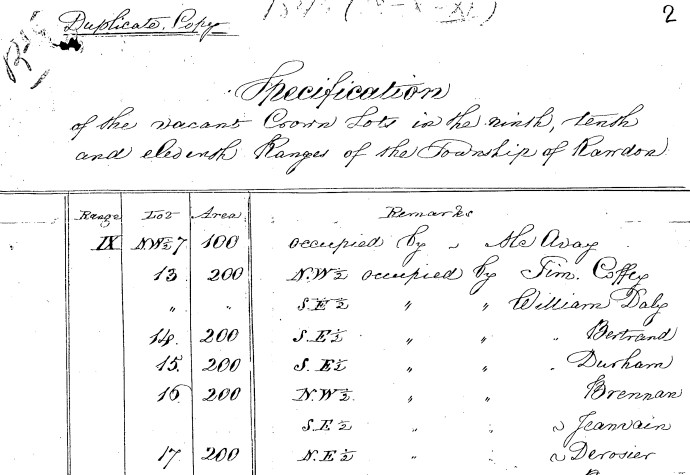 Duplicate Copy
2
Specification
of the vacant Crown Lots in the ninth, tenth
and eleventh Ranges of the Township of Rawdon
Range Lot Area Remarks
IX N.W½ 7 100 occupied by " Mc Avay
13 200 N.W½ occupied by Tim. Coffey
" " S.E½ " " William Daly
14 200 S.E½ " " " Bertrand
15 200 S.E½ " " " Durham
16 200 N.W½ " " Brennan
S.E½ " " " Jeanvain
17 200 N.E½ " " " Derosier